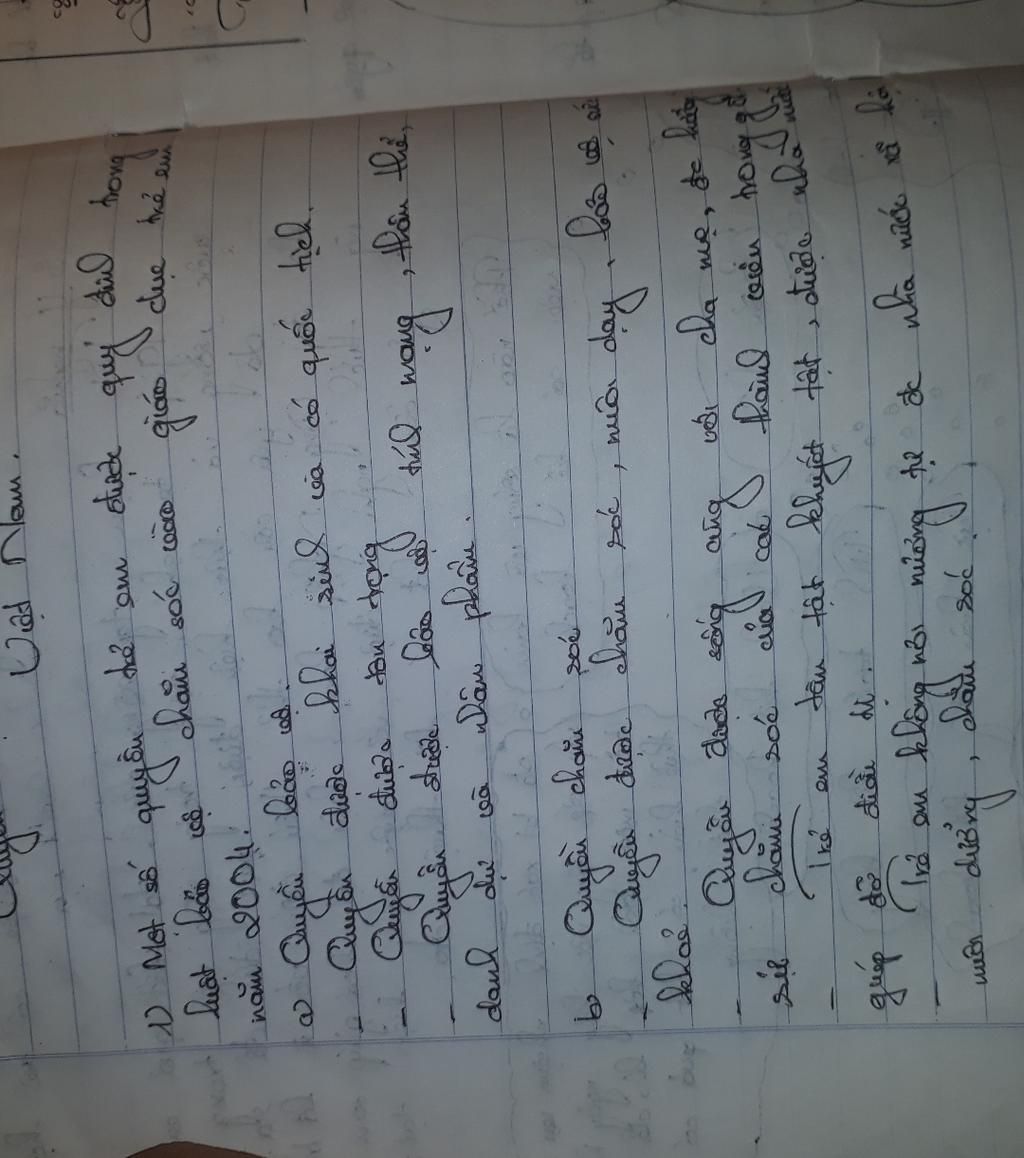 Việt Nam.
1) Một số quyền trẻ em được quy định trong
luật bảo vệ chăm sóc và giáo dục trẻ em
năm 2004.
a) Quyền bảo vệ.
- Quyền được khai sinh và có quốc tịch.
- Quyền được tôn trọng
- Quyền được bảo vệ tính mạng, thân thể,
danh dự và nhân phẩm.
b) Quyền chăm sóc
- Quyền được chăm sóc, nuôi dạy, bảo vệ sức
khoẻ.
- Quyền được sống cùng với cha mẹ, đc
sự chăm sóc của các thành viên trong
- Trẻ em tàn tật khuyết tật, được nhà nước
giúp đỡ điều trị.
- Trẻ em không nơi nương tựa đc nhà nước xã hội
nuôi dưỡng, chăm sóc